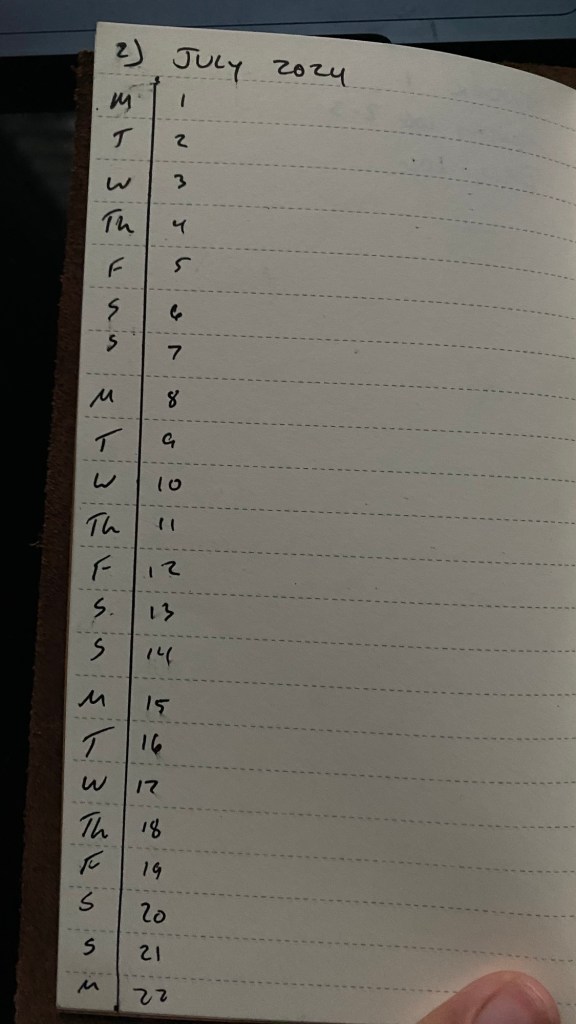 2) JULY 2024
M 1
T 2
W 3
Th 4
F 5
S 6
S 7
M 8
T 9
W 10
Th 11
F 12
S. 13
S 14
M 15
T 16
W 17
Th 18
F 19
S 20
S 21
M 22